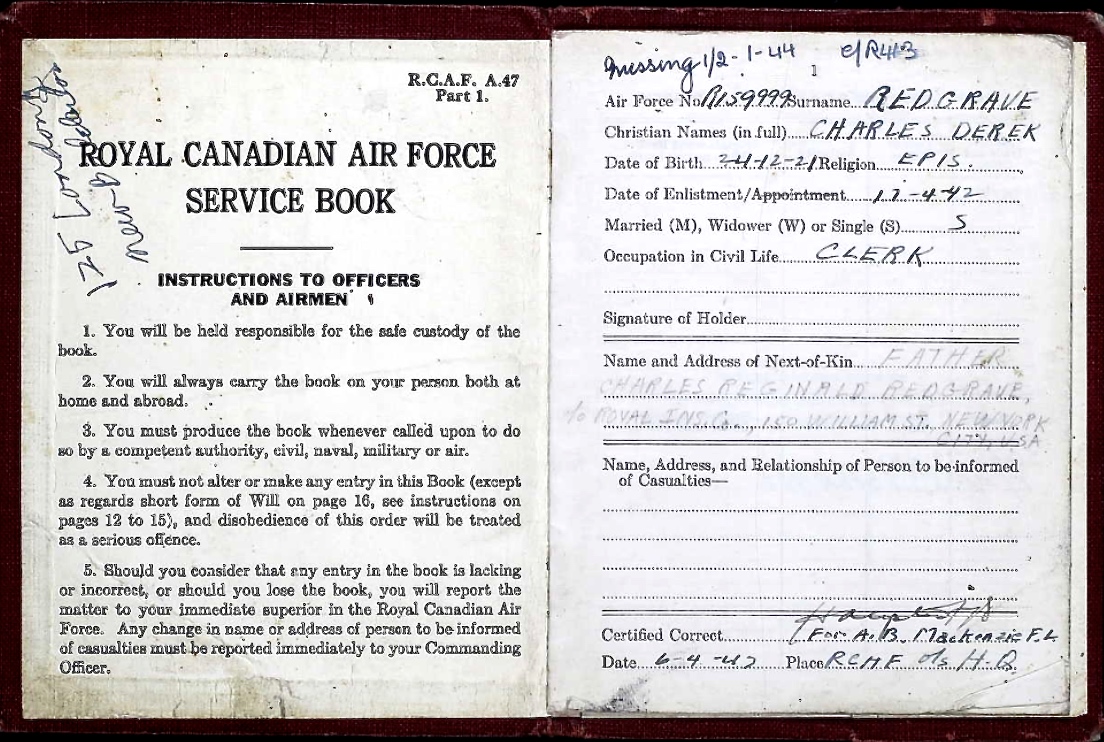 R.C.A.F. A.47
Part 1.
125 London
ROYAL CANADIAN AIR FORCE
SERVICE BOOK
INSTRUCTIONS TO OFFICERS
AND AIRMEN
1. You will be held responsible for the safe custody of the
book.
2. You will always carry the book on your person both at
home and abroad.
3. You must produce the book whenever called upon to do
so by a competent authority, civil, naval, military or air.
4. You must not alter or make any entry in this Book (except
as regards short form of Will on page 16, see instructions on
pages 12 to 15), and disobedience of this order will be treated
as a serious offence.
5. Should you consider that any entry in the book is lacking
or incorrect, or should you lose the book, you will report the
matter to your immediate superior in the Royal Canadian Air
Force. Any change in name or address of person to be informed
of casualties must be reported immediately to your Commanding
Officer.
Missing 1/2-1-44
1
Air Force No R159999 Surname REDGRAVE
Christian Names (in full) CHARLES DEREK
Date of Birth 24-12-21 Religion EPIS.
Date of Enlistment/Appointment 17-4-42
Married (M), Widower (W) or Single (S) S
Occupation in Civil Life CLERK
Signature of Holder
Name and Address of Next-of-Kin FATHER
CHARLES REGINALD REDGRAVE,
c/o ROYAL INS. Co., 150 WILLIAM ST., NEW YORK
CITY, USA
Name, Address, and Relationship of Person to be informed
of Casualties—
Certified Correct For A. B. Mackenzie F.L
Date 6-4-43 Place RCAF o/s H-Q